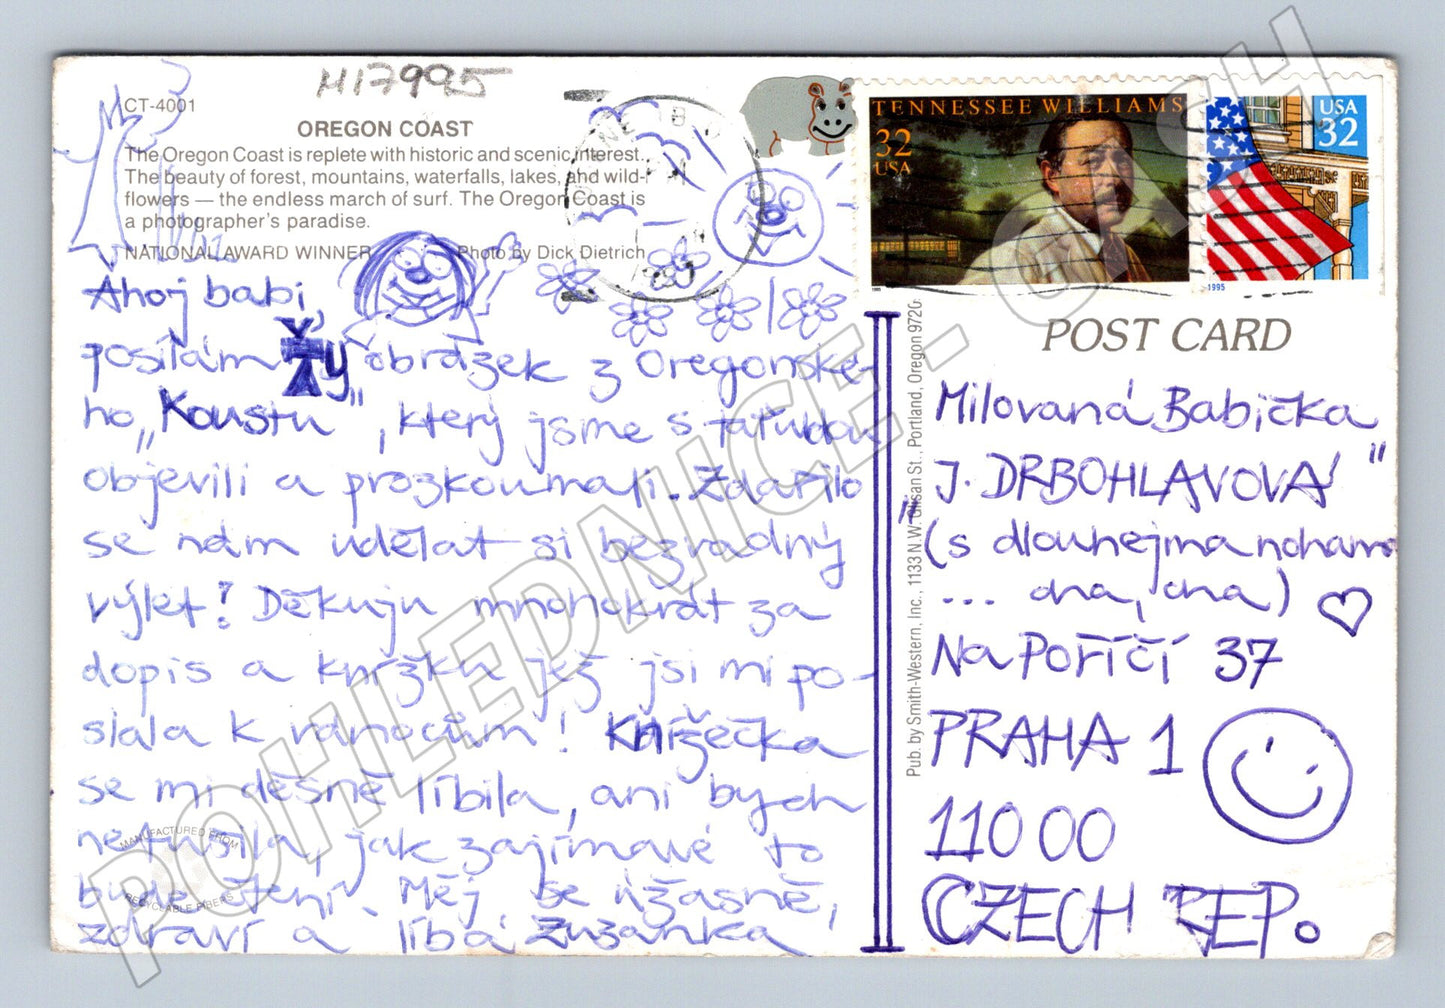 H17995
CT-4001
OREGON COAST
The Oregon Coast is replete with historic and scenic interest.
The beauty of forest, mountains, waterfalls, lakes, and wild-
flowers — the endless march of surf. The Oregon Coast is
a photographer's paradise.
NATIONAL AWARD WINNER Photo by Dick Dietrich
Ahoj babi,
posílám Ti obrázek z Oregonské-
ho „Koustu", který jsme s taťudou
objevili a prozkoumali. Zdařilo
se nám udělat si bezvadný
výlet! Děkuju mnohokrát za
dopis a knížku jež jsi mi po-
slala k vánocům! Knížečka
se mi děsně líbila, ani bych
netušila, jak zajímavé to
bude čtení. Měj se úžasně,
zdraví a líbá Zuzanka
MANUFACTURED FROM
RECYCLABLE FIBERS
TENNESSEE WILLIAMS
32
USA
1995
USA
32
1995
POST CARD
Pub. by Smith-Western, Inc., 1133 N.W. Glisan St., Portland, Oregon 9720
Milovaná Babička
„J. DRBOHLAVOVÁ"
(s dlouhejma nohama
... cha, cha)
Na Poříčí 37
PRAHA 1
110 00
CZECH REP.
POHLEDNICE - CASH